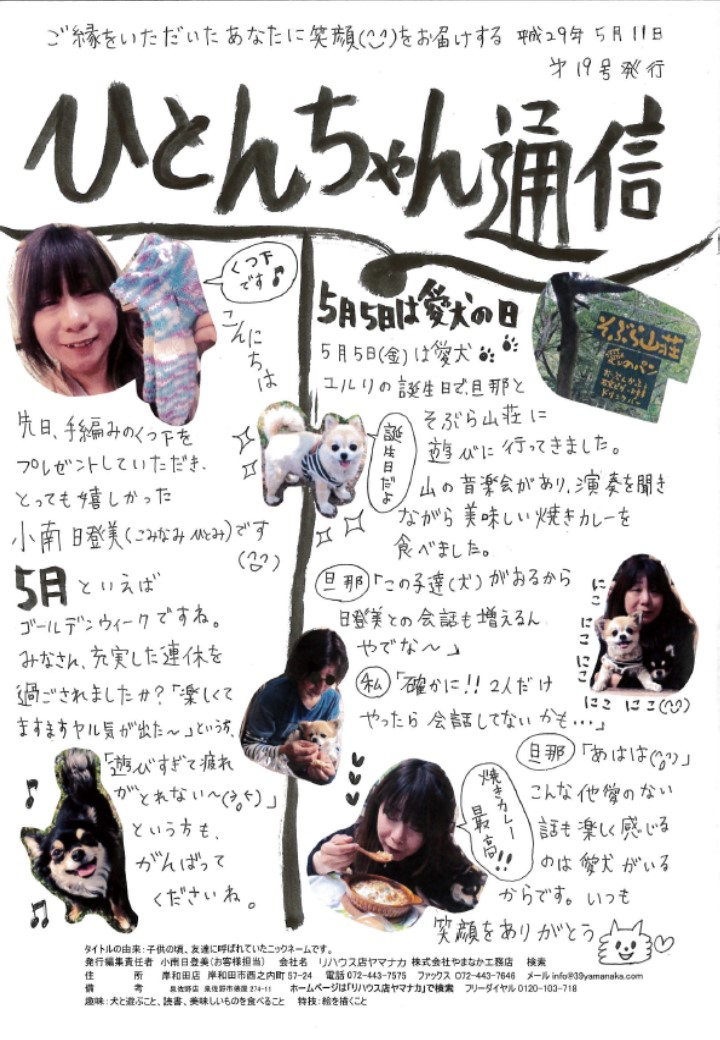 ご縁をいただいたあなたに笑顔(^^)をお届けする 平成29年5月11日
第19号発行
ひとんちゃん通信
くつ下
です♪
こんにちは
先日、手編みのくつ下を
プレゼントしていただき、
とっても嬉しかった
小南日登美(こみなみひとみ)です
(^^)
5月といえば
ゴールデンウィークですね。
みなさん、充実した連休を
過ごされましたか?「楽しくて
ますますヤル気が出た～」という方、
「遊びすぎて疲れ
がとれない～」
という方も、
がんばって
くださいね。
5月5日は愛犬の日
そぶら山荘
5月5日(金)は愛犬
ユルリの誕生日で、旦那と
そぶら山荘に
遊びに行ってきました。
誕生日だよ
山の音楽会があり、演奏を聞き
ながら美味しい焼きカレーを
食べました。
旦那「この子達(犬)がおるから
日登美との会話も増えるん
やでな～」
にこ にこ にこ にこ にこ(^^)
私「確かに!!2人だけ
やったら会話してないかも…」
旦那「あはは(^^)」
焼きカレー
最高!!
こんな他愛のない
話も楽しく感じる
のは愛犬がいる
からです。いつも
笑顔をありがとう
タイトルの由来:子供の頃、友達に呼ばれていたニックネームです。
発行編集責任者 小南日登美(お客様担当) 会社名 リハウス店ヤマナカ 株式会社やまなか工務店 検索
住 所 岸和田店 岸和田市西之内町57-24 電話072-443-7575 ファックス 072-443-7646 メールinfo@39yamanaka.com
備 考 泉佐野店 泉佐野市俵屋274-11 ホームページは「リハウス店ヤマナカ」で検索 フリーダイヤル0120-103-718
趣味:犬と遊ぶこと、読書、美味しいものを食べること 特技:絵を描くこと